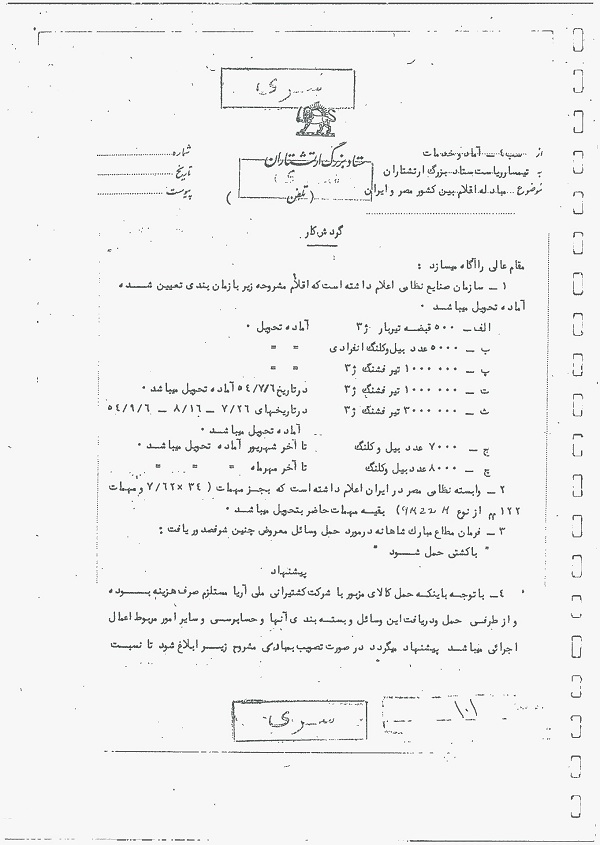 سری
ستاد بزرگ ارتشتاران
از سب ٤ ــ آماد و خدمات
شماره
به تیمسار ریاست ستاد بزرگ ارتشتاران
تاریخ
موضوع مبادله اقلام بین کشور مصر و ایران
(تلفن )
پیوست
گردش کار
مقام عالی را آگاه میسازد :
۱ ــ سازمان صنایع نظامی اعلام داشته است که اقلام مشروحه زیر با زمان بندی تعیین شــده
آماده تحویل میباشد ۰
الف ــ ۵۰۰ قبضه تیربار ژ۳ آماده تحویل ۰
ب ــ ۵۰۰۰ عدد بیل و کلنگ انفرادی = =
پ ــ ۱۰۰۰۰۰۰ تیر فشنگ ژ۳ = =
ت ــ ۱۰۰۰۰۰۰ تیر فشنگ ژ۳ در تاریخ ۵٤/۷/٦ آماده تحویل میباشد ۰
ث ــ ۳۰۰۰۰۰۰ تیر فشنگ ژ۳ در تاریخهای ۷/۲٦ ــ ۸/۱٦ ــ ۵٤/۹/٦
آماده تحویل میباشد ۰
ج ــ ۷۰۰۰ عدد بیل و کلنگ تا آخر شهریور آماده تحویل میباشد ۰
چ ــ ۸۰۰۰ عدد بیل و کلنگ تا آخر مهرماه = = =
۲ ــ وابسته نظامی مصر در ایران اعلام داشته است که بجــز مهمات ( ۳٤ × ۷/٦۲ و مهمات
۱۲۲ م م از نوع ) بقیه مهمات حاضر بتحویل میباشد ۰
۳ ــ فرمان مطاع مبارک شاهانه در مورد حمل وسائل معروض چنین شرفصدور یافت :
" با کشتی حمل شــود "
پیشنهاد
٤ــ با توجه باینکه حمل کالای مزبور با شرکت کشتیرانی ملی آریا مستلزم صرف هزینه بــوده
و از طرفی حمل و دریافت این وسائل و بسته بندی آنها و حسابرسی و سایر امور مربوط اعمال
اجرائی میباشد پیشنهاد میگردد در صورت تصویب بمبادی مشروح زیــر ابلاغ شود تا نسبت
۱۰۱
سری